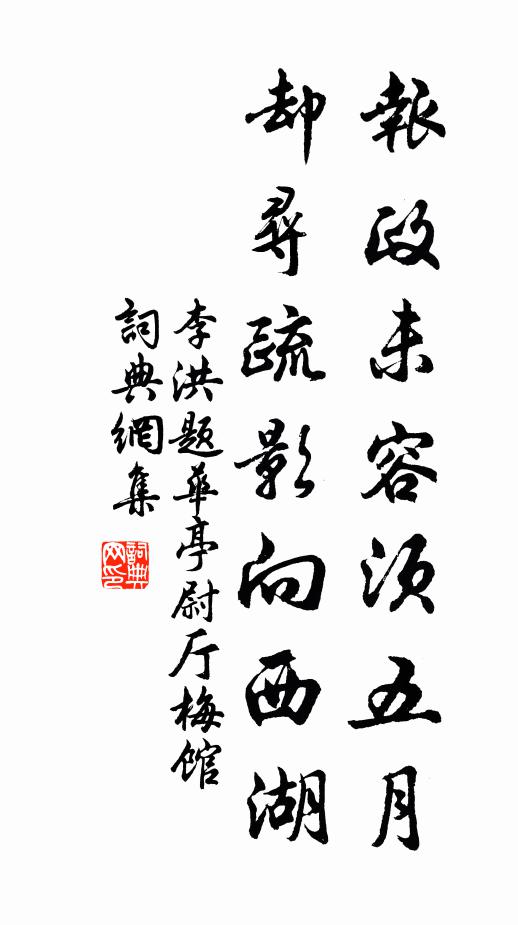 報政未容須五月
却尋疏影向西湖
李洪题華亭尉厅梅馆
詞典網集
詞典網印